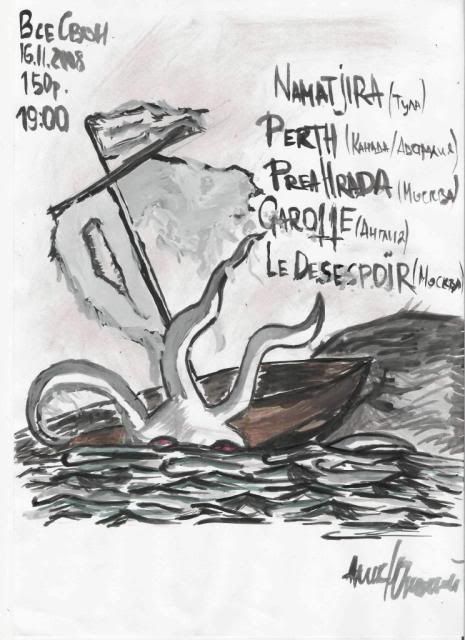 Все Свои
16.11.2008
150р.
19:00
NAMATJIRA (Тула)
PERTH (Канада/Австралия)
PREAHRADA (Москва)
GAROTTE (Англия)
LE DESESPOIR (Москва)